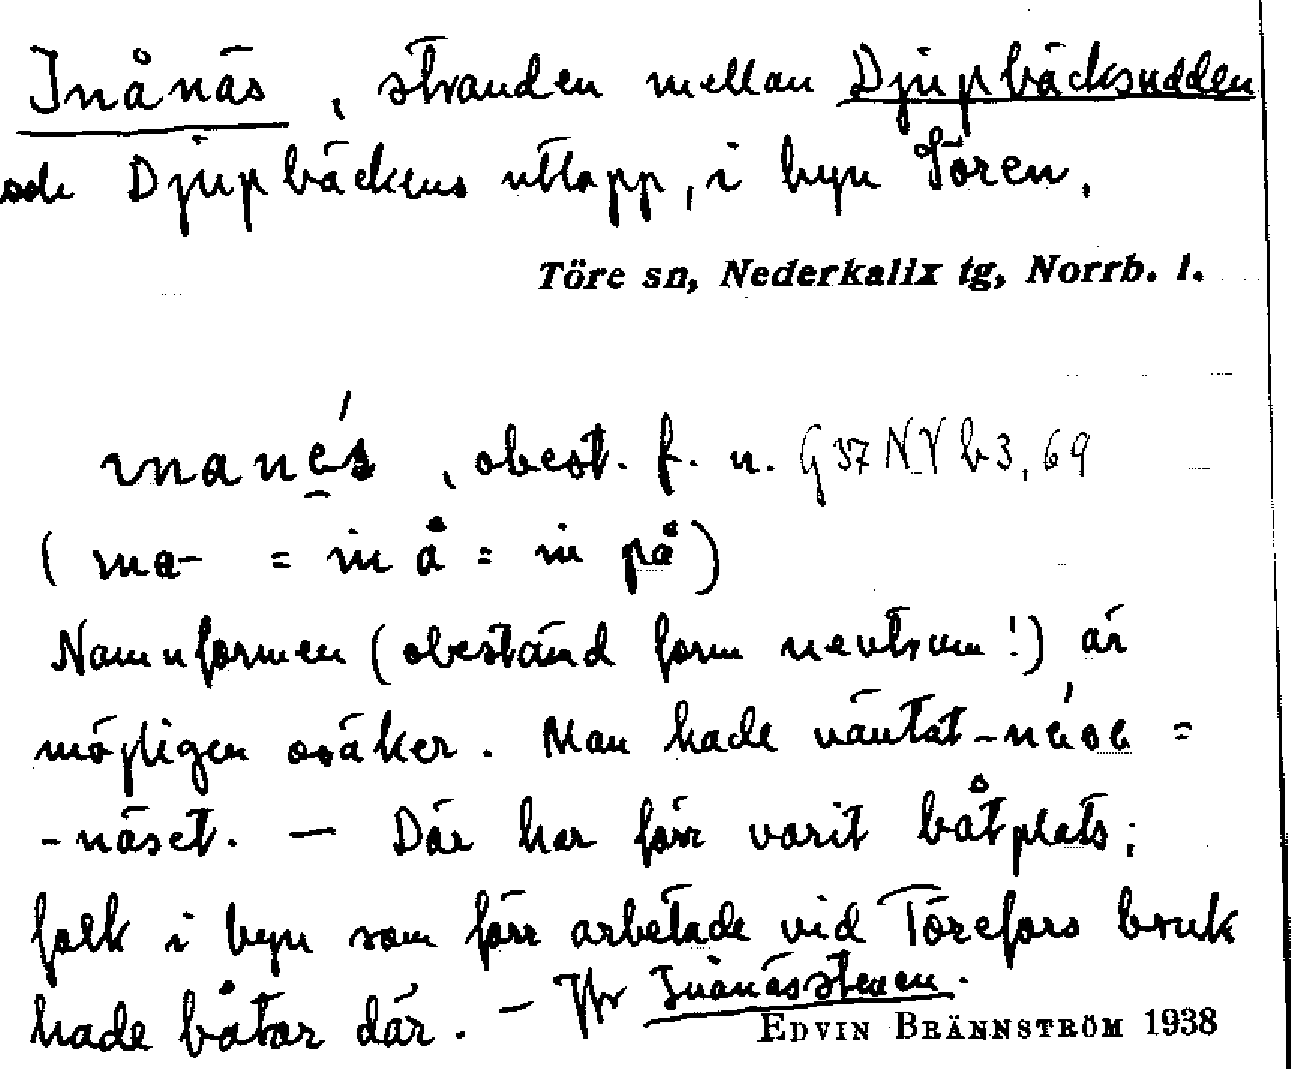 Inånäs, stranden mellan Djupbäcksudden
och Djupbäckens utlopp, i byn Tören.
Töre sn, Nederkalix tg, Norrb. l.
ɩnanés, obest. f. n. G37NYb3,69
(ɩna- = in å = in på)
Namnformen (obestämd form neutrum!) är
möjligen osäker. Man hade väntat -nése =
-näset. — Där har förr varit båtplats;
folk i byn som förr arbetade vid Törefors bruk
hade båtar där. — Jfr Inånässtenen.
EDVIN BRÄNNSTRÖM 1938